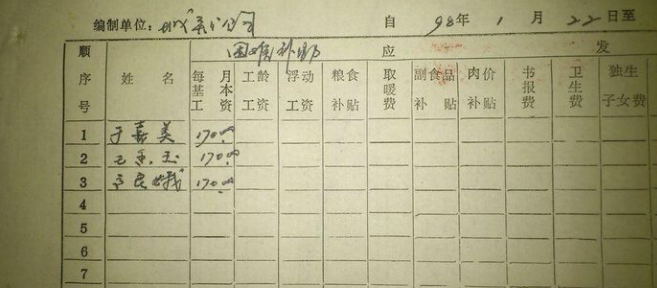 编制单位: 公司 自 98年 1 月 22日至
困难补助 应 发
顺序号 姓 名 每月基本工资 工龄工资 浮动工资 粮食补贴 取暖费 副食品补贴 肉价补贴 书报费 卫生费 独生子女费
1 于嘉美 170.00
2 王 玉 170.00
3 170.00
4
5
6
7